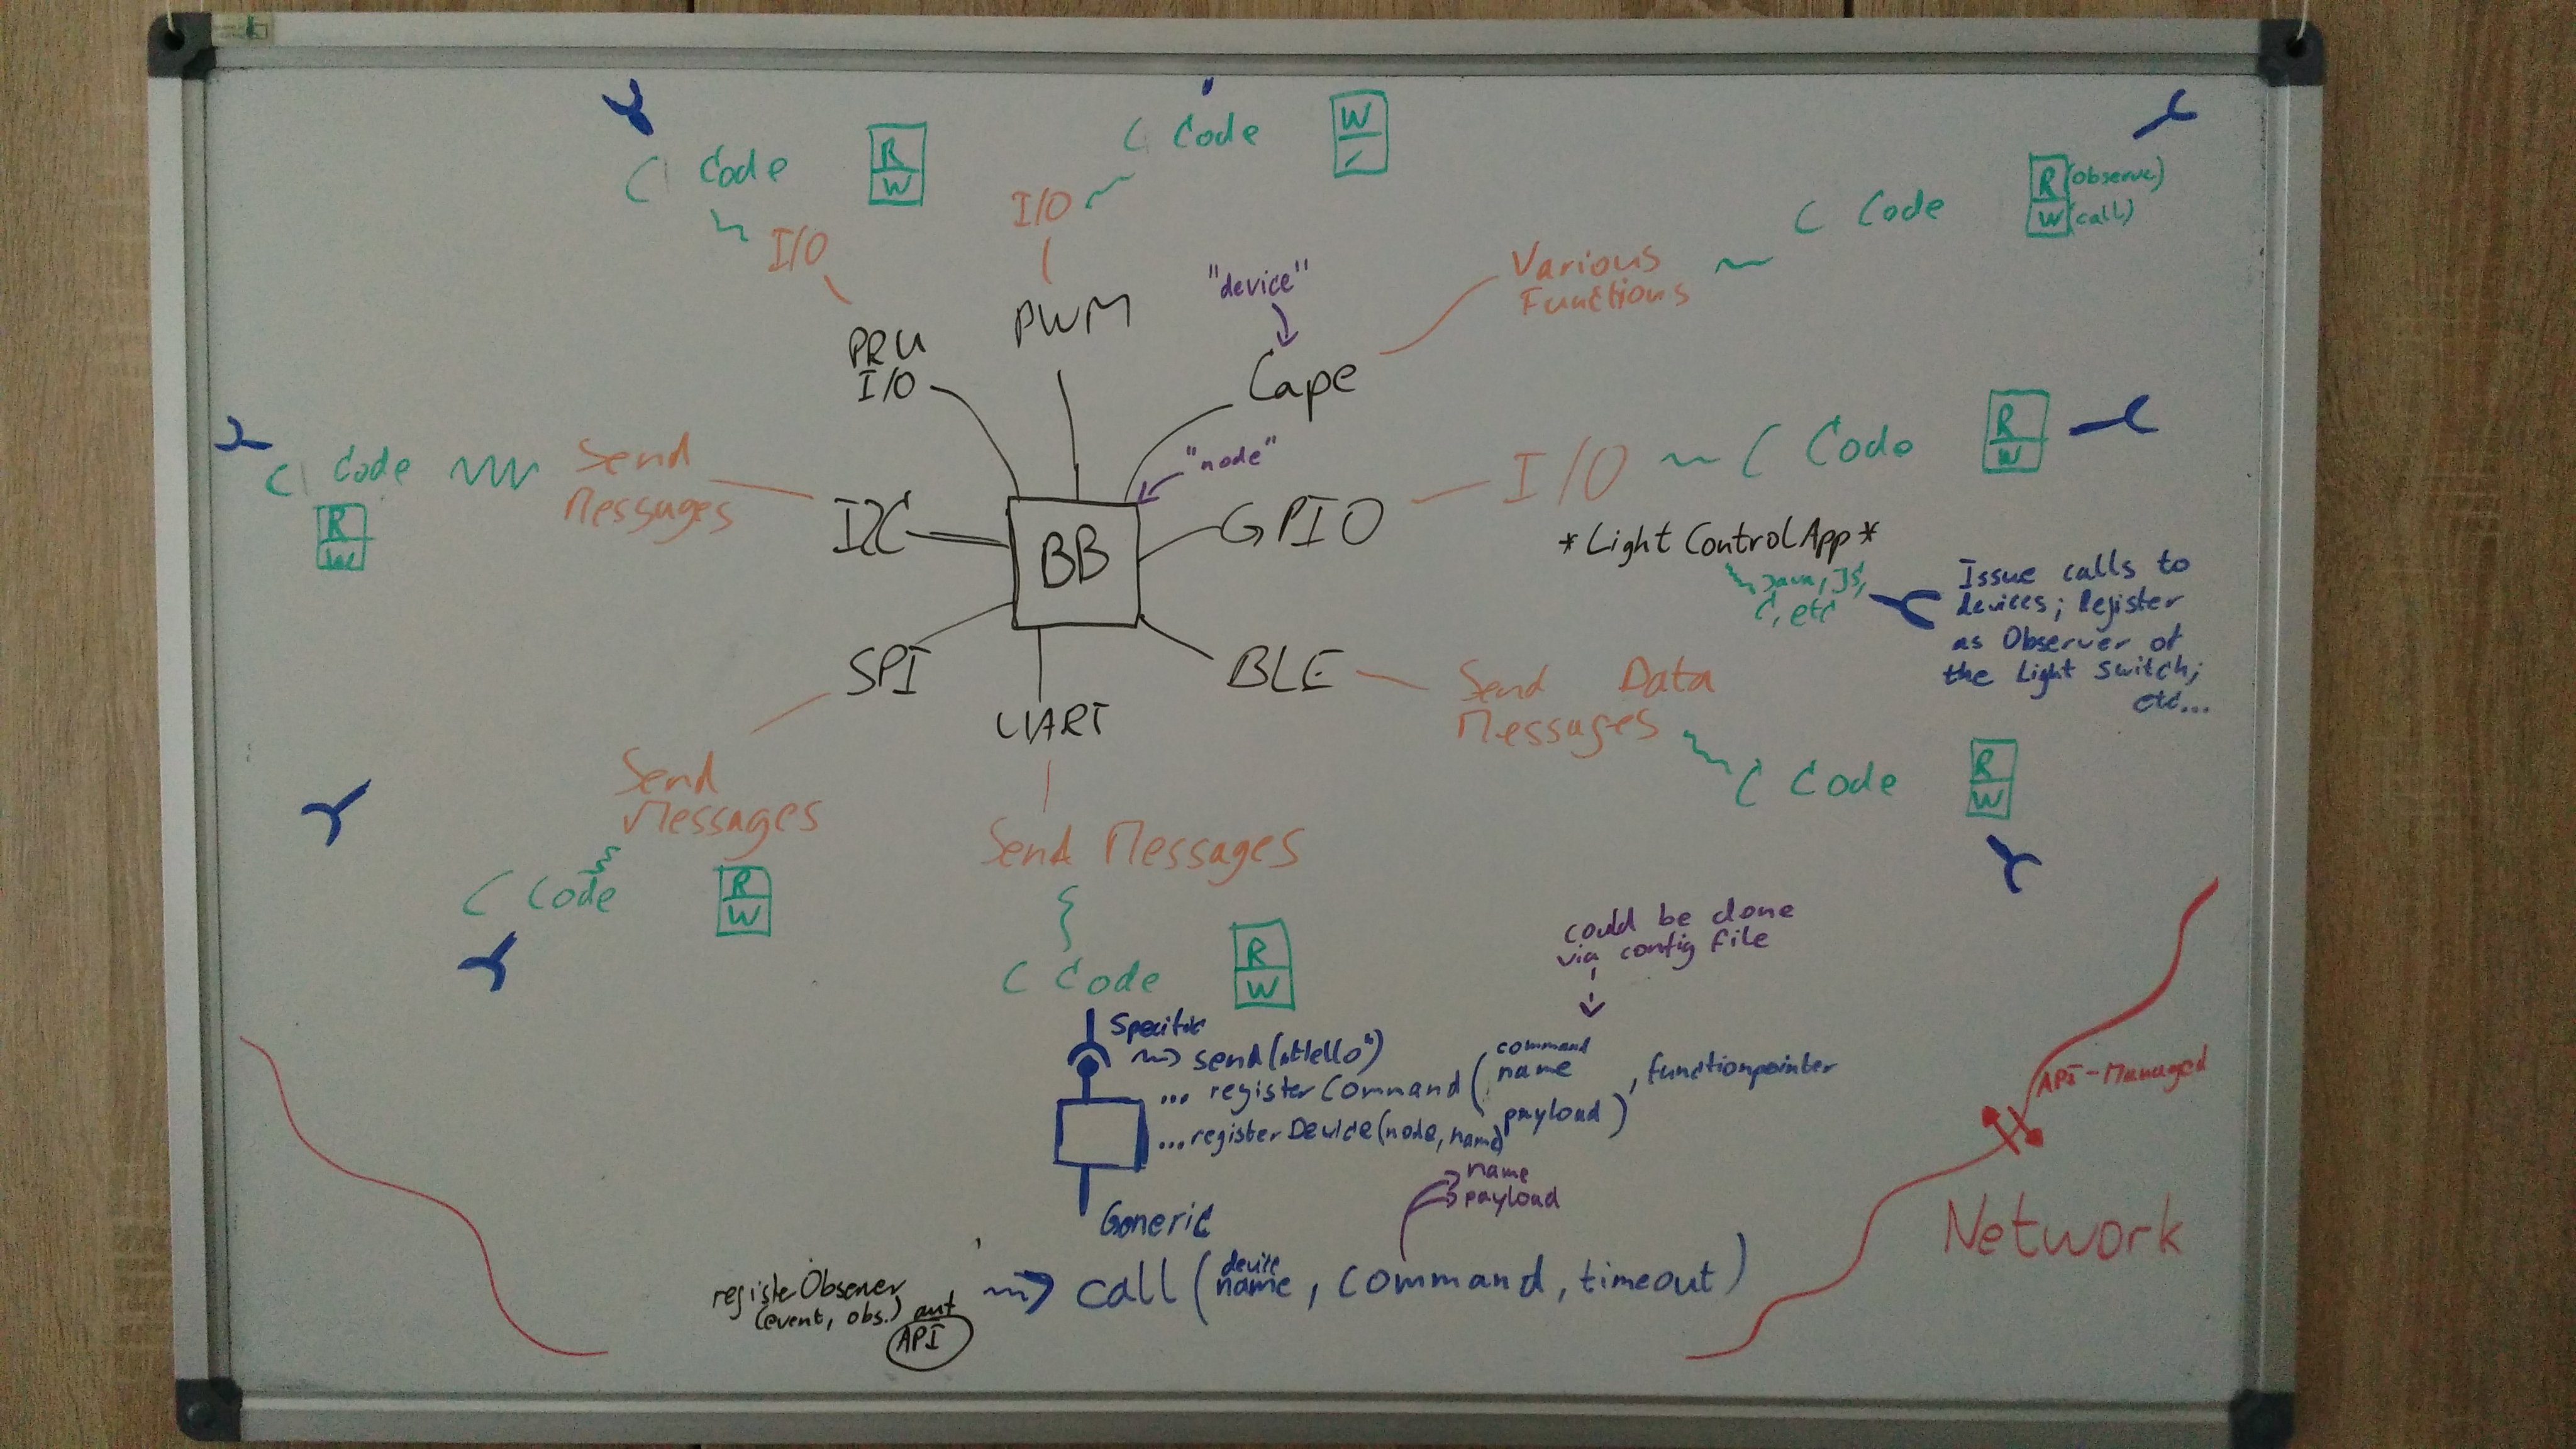 C Code
R
W
C Code
W
I/O
I/O
"device"
Various
Functions
C Code
R (observe)
W (call)
PRU
I/O
PWM
Cape
"node"
C Code
R
W
Send
Messages
I2C
BB
GPIO
I/O
C Code
R
W
*Light Control App*
Java, JS,
C, etc
Issue calls to
devices; Register
as Observer of
the Light Switch;
etc...
SPI
UART
BLE
Send Data
Messages
C Code
R
W
Send
Messages
C Code
R
W
Send Messages
C Code
R
W
could be done
via config file
Specific
send("Hello")
... registerCommand(command
name
payload), functionpointer
...registerDevice(node, name)
name
payload
Generic
call(device
name, command, timeout)
registerObserver
(event, obs.) auf
API
API-Managed
Network